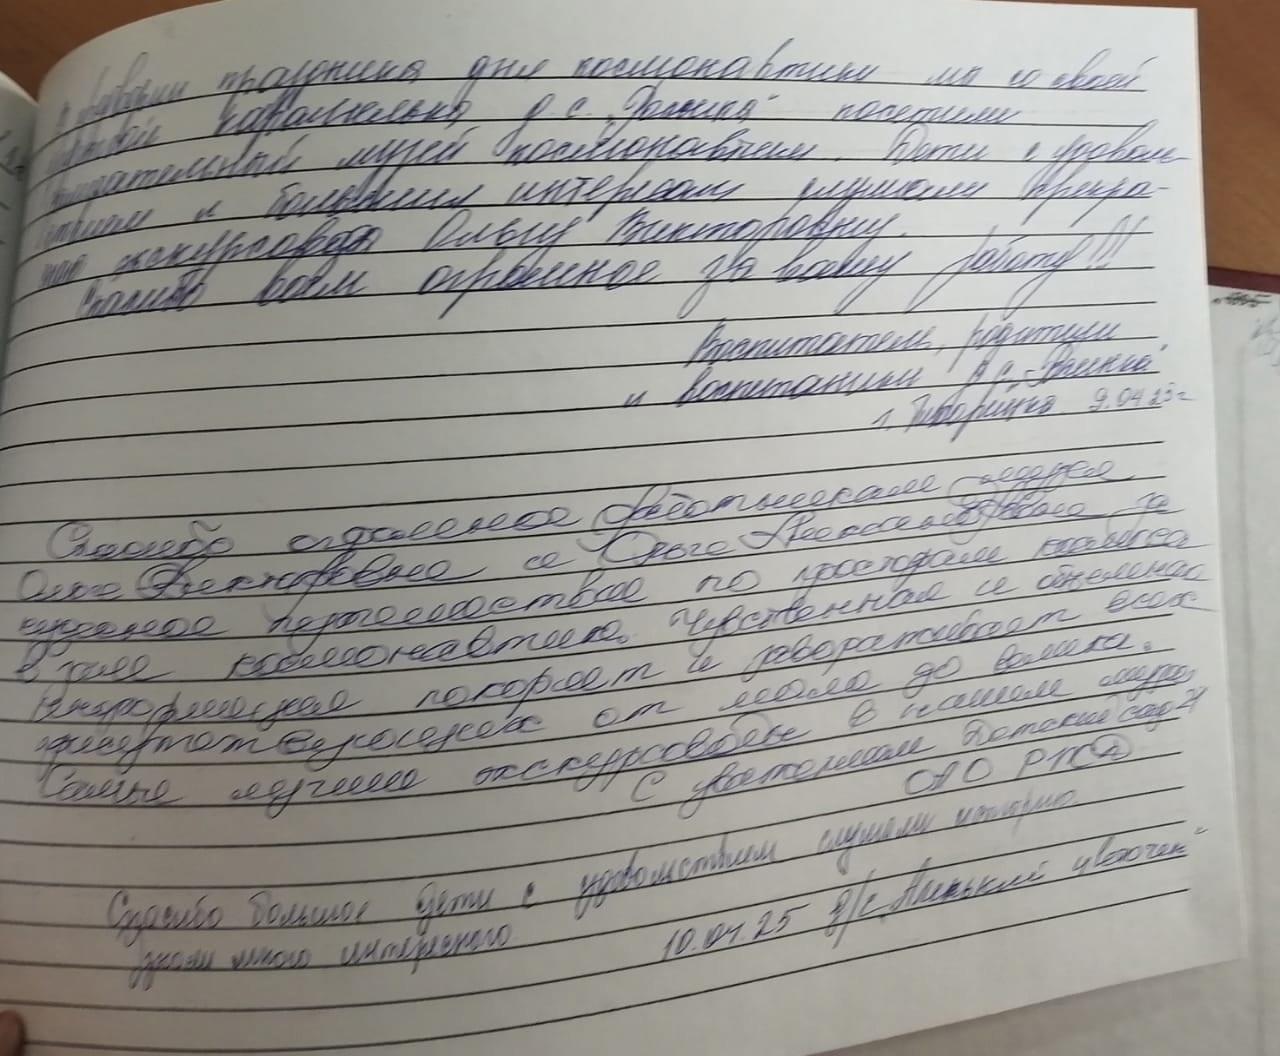 праздника дня космонавтики мы со своей
д.с. посетили
музей космонавтики. Дети с удоволь
и большим интересом слушали прекра-
экскурсовода Ольгу Викторовну.
Спасибо Вам огромное за вашу работу!!!
Воспитатели, родители
и воспитанники
9.04.25г
Спасибо огромное работникам музея
Ольге Викторовне и Ольге Александровне за
чудесное путешествие по просторам космоса
в зале космонавтики. Чувственная и
информация покоряет и завораживает всех
от мала до велика.
Самые лучшие экскурсоводы в нашем музее
С уважением Детский сад
ОАО РЖД
Спасибо большое дети с удовольствием слушали историю
узнали много интересного
10.04.25 д/с „Аленький цветочек"